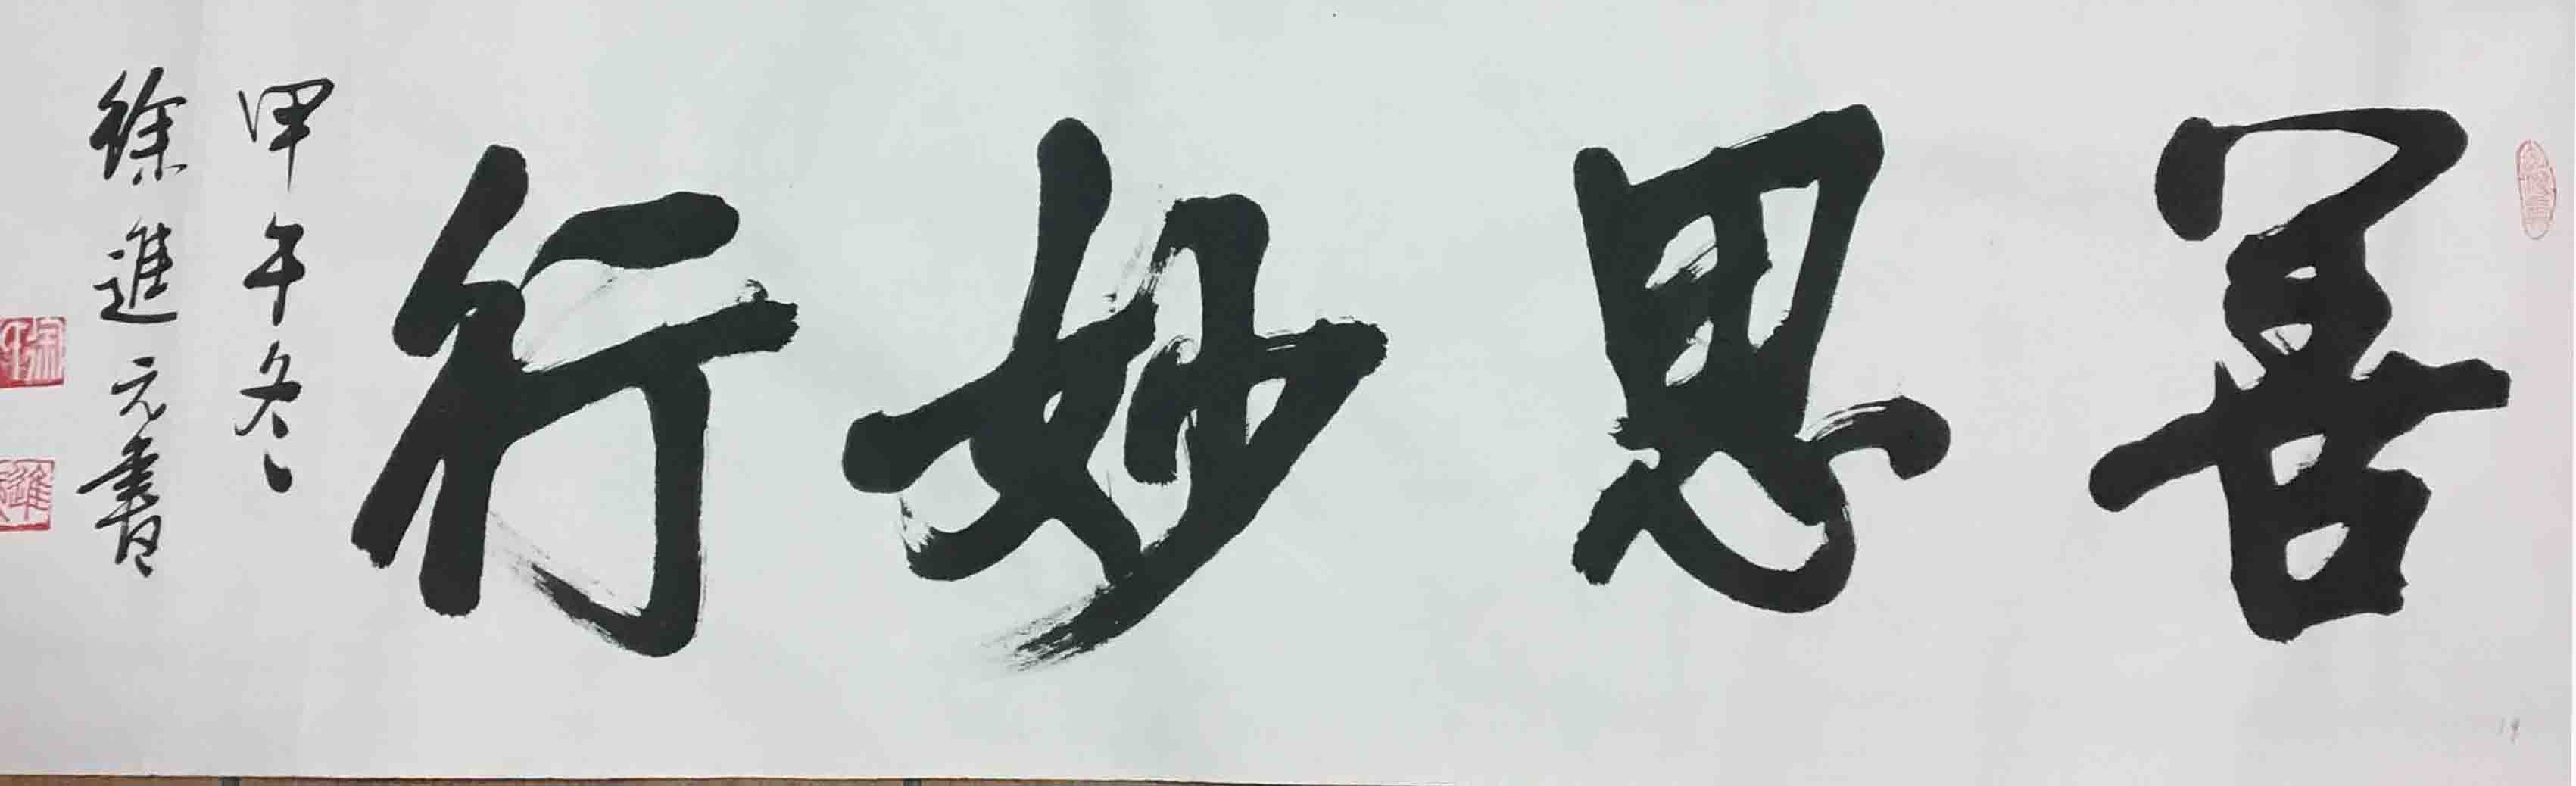 善思妙行
甲午冬、
徐進元書